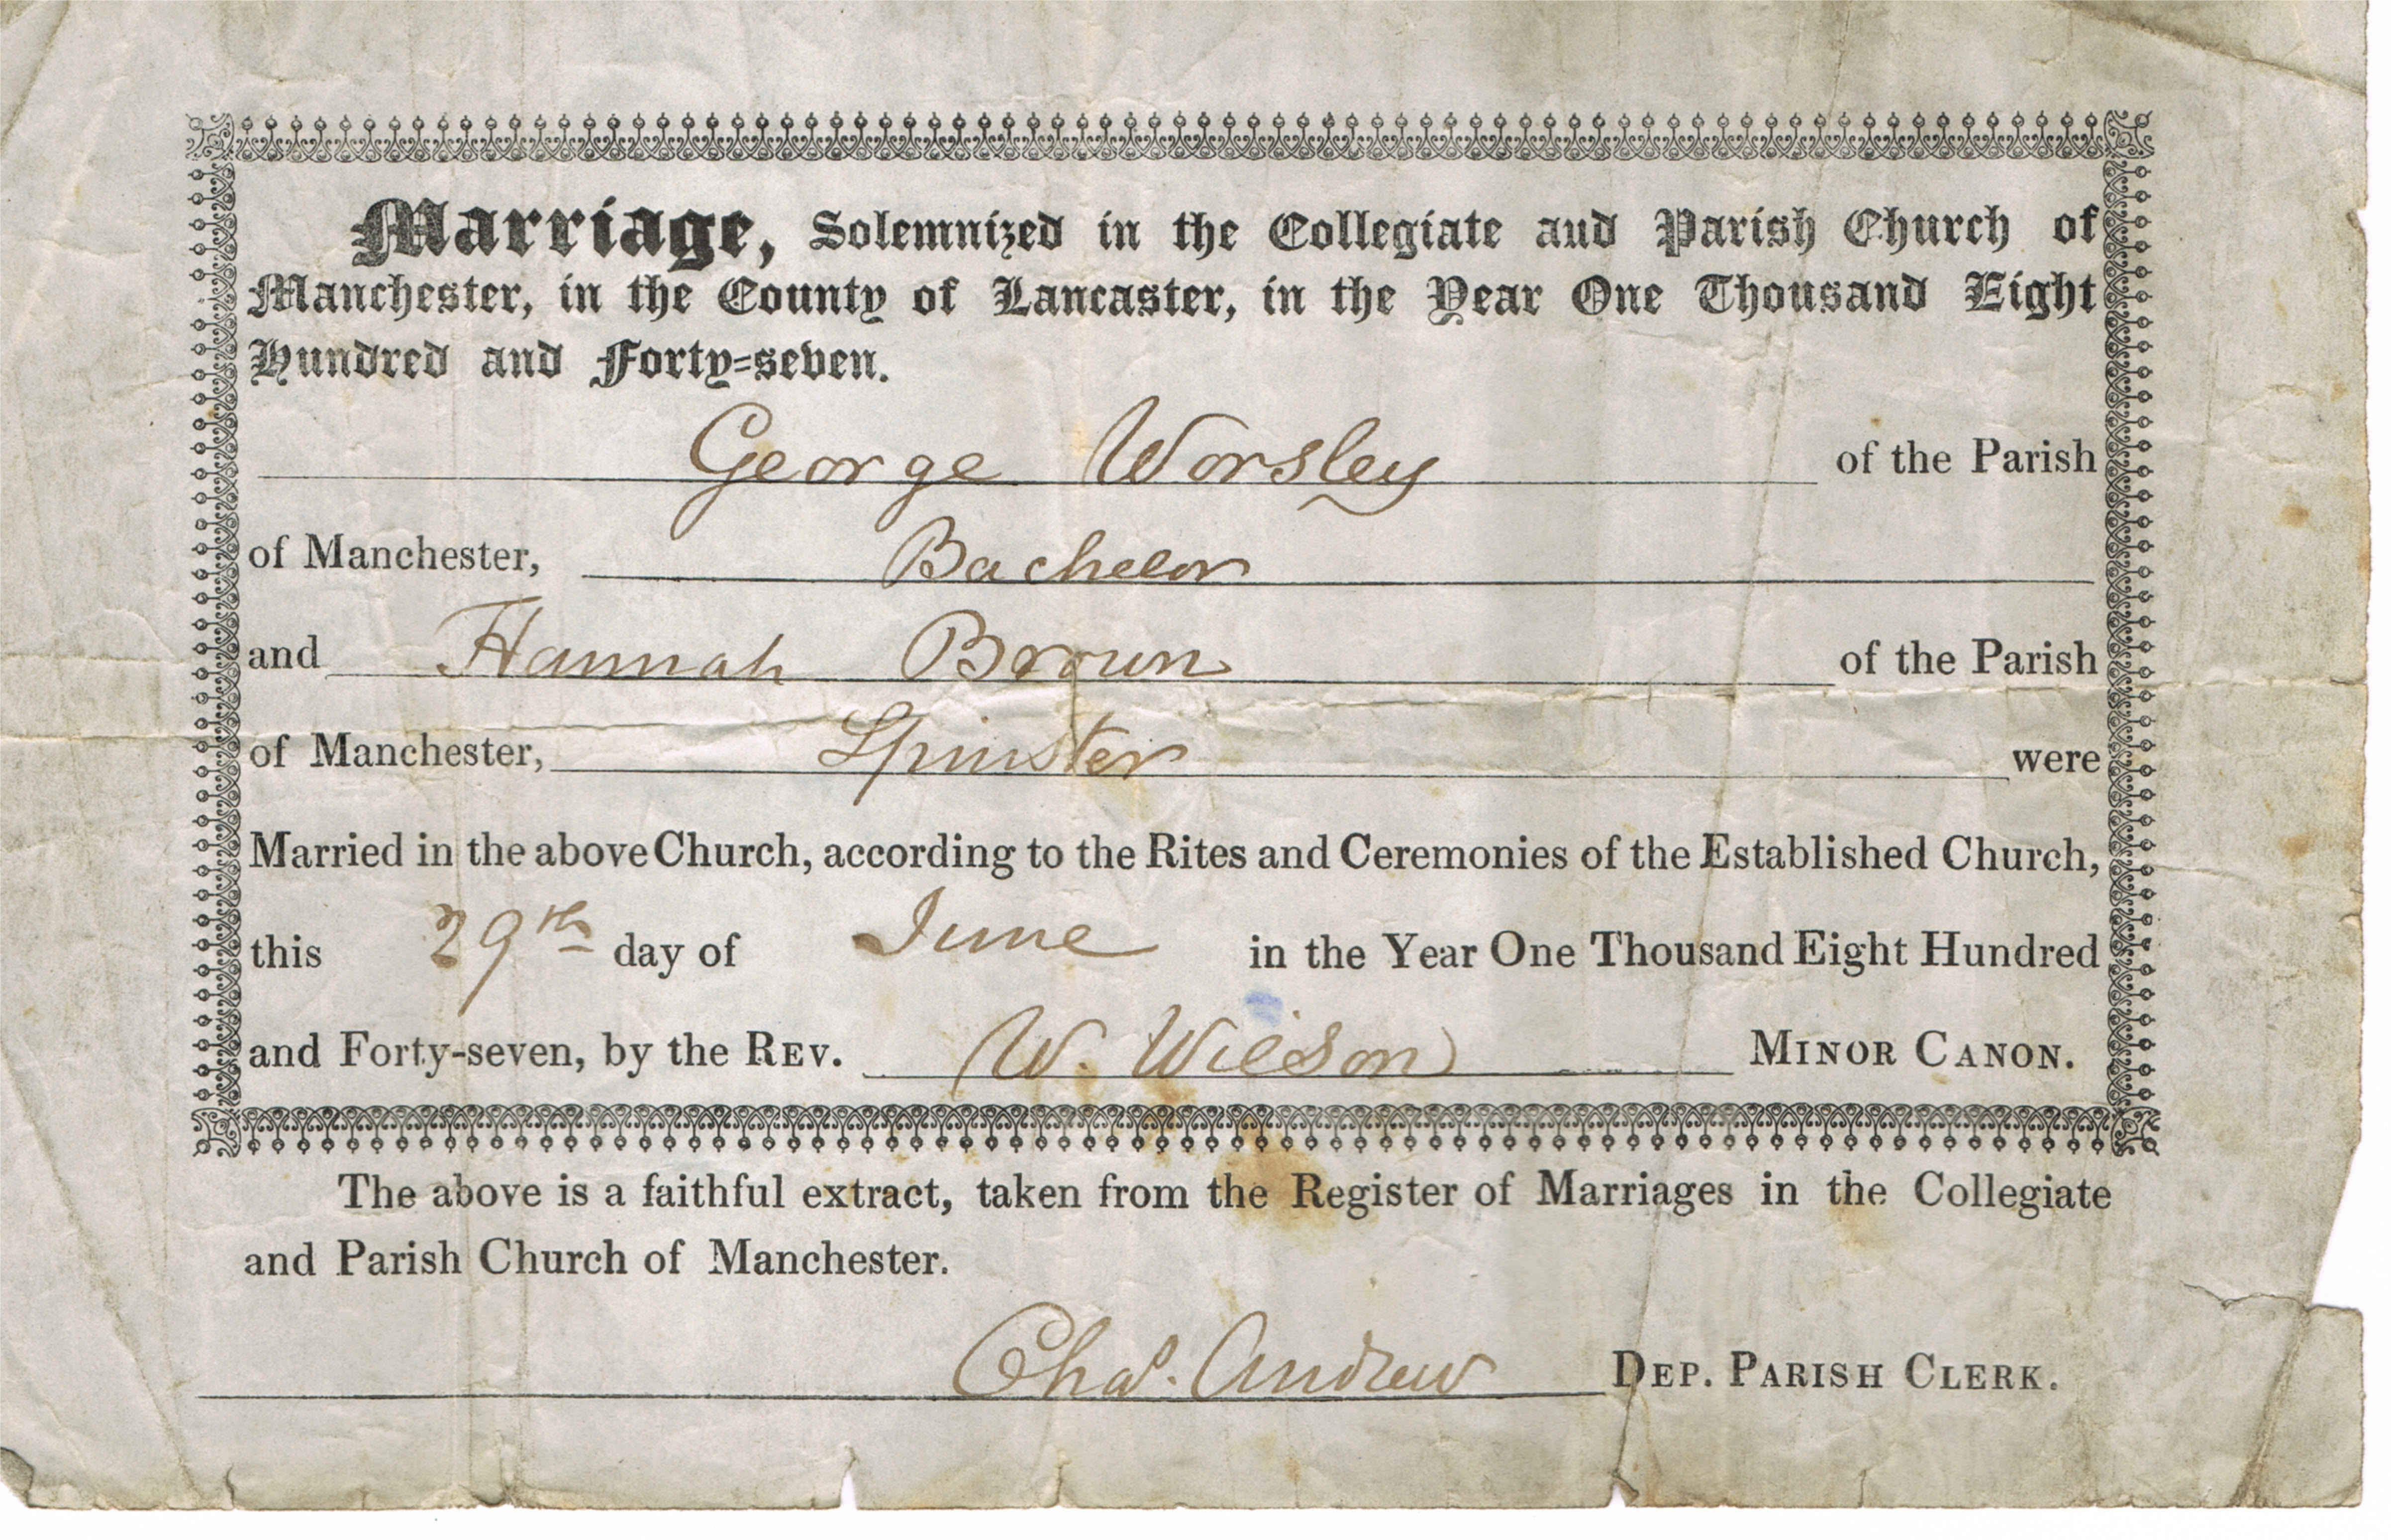 Marriage, Solemnized in the Collegiate and Parish Church of
Manchester, in the County of Lancaster, in the Year One Thousand Eight
Hundred and Forty-seven.
George Worsley of the Parish
of Manchester, Bachelor
and Hannah Brown of the Parish
of Manchester, Spinster were
Married in the above Church, according to the Rites and Ceremonies of the Established Church,
this 29th day of June in the Year One Thousand Eight Hundred
and Forty-seven, by the REV. W. Wilson MINOR CANON.
The above is a faithful extract, taken from the Register of Marriages in the Collegiate
and Parish Church of Manchester.
Chas. Andrew DEP. PARISH CLERK.